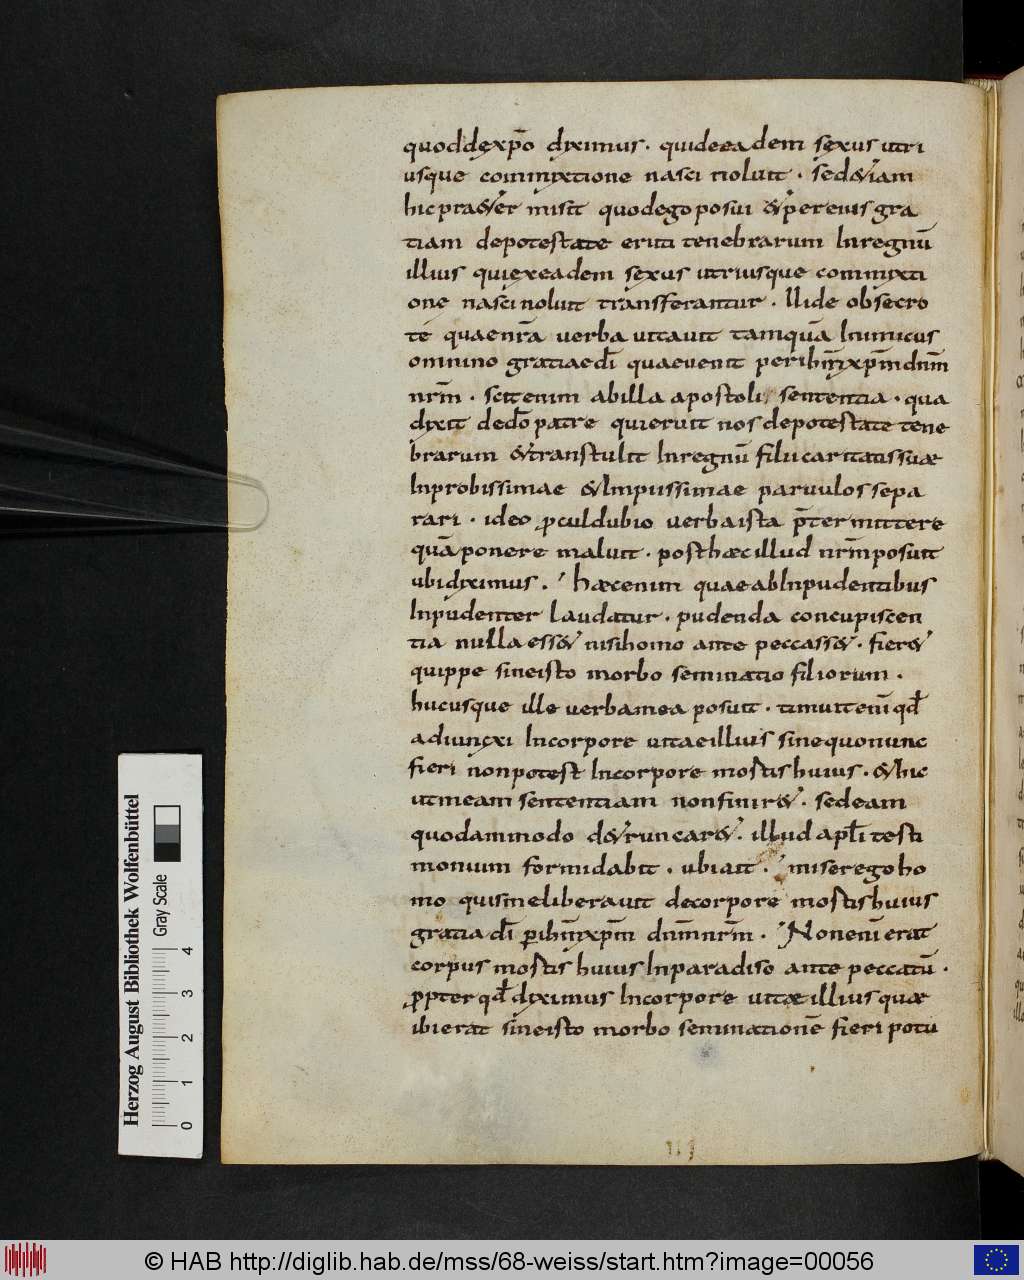 quod de xp̄o diximus · qui de eadem sexus utri
usque commixtione nasci noluit · sed &iam
hic pra&er misit quod ego posui & per eius gra
tiam de potestate erui tenebrarum In regnū
illius qui ex eadem sexus utriusque commixti
one nasci noluit transferantur · Uide obsecro
te quae nr̄a uerba uitauit tamquā Inimicus
omnino gratiae dī quae uenit per ihm̄ xpm̄ dnm̄
nrm̄ · scit enim ab illa apostoli sententia · qua
dixit de dō patre qui eruit nos de potestate tene
brarum & transtulit In regnū filii caritatis suae
Inprobissimae & Impiissimae paruulos sepa
rari · ideo procul dubio uerba ista p̄termittere
quā ponere maluit · post hæc illud nrm̄ posuit
ubi diximus · hæc enim quae ab Inpudentibus
Inpudenter laudatur · pudenda concupiscen
tia nulla ess& nisi homo ante peccass& · fier&
quippe sine isto morbo seminatio filiorum ·
hucusque ille uerba mea posuit · timuit enī qd̄
adiunxi In corpore uitae illius sine quo nunc
fieri non potest In corpore mortis huius · & hic
ut meam sententiam non finir& · sed eam
quodammodo d&runcar& · illud apl̄i testi
monium formidabit · ubi ait · miser ego ho
mo quis me liberauit de corpore mortis huius
gratia dī p ihm̄ xpm̄ dnm̄ nrm̄ · Non enī erat
corpus mortis huius In paradiso ante peccatū ·
propter qd̄ diximus In corpore uitæ illius quæ
ibi erat sine isto morbo seminationē fieri potu
Herzog August Bibliothek Wolfenbüttel
Gray Scale
0 1 2 3 4
© HAB http://diglib.hab.de/mss/68-weiss/start.htm?image=00056